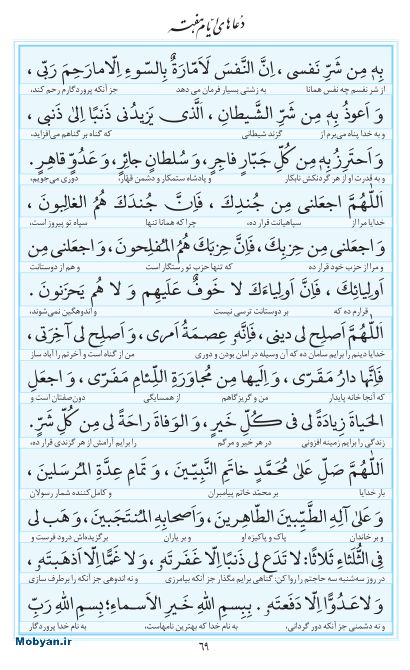 دعاهای ایام هفته
بِهِ مِن شَرِّ نَفسی ، اِنَّ النَّفسَ لَاَمّارَةٌ بِالسّوءِ اِلّا ما رَحِمَ رَبّی ،
از شر نفسم چه نفس همانا به زشتی بسیار فرمان می دهد جز آنکه پروردگارم رحم کند،
وَ اَعوذُ بِهِ مِن شَرِّ الشَّیطانِ ، اَلَّذی یَزیدُنی ذَنبًا اِلیٰ ذَنبی ،
و به خدا پناه می‌برم از گزند شیطانی که گناه بر گناهم می‌افزاید،
وَ اَحتَرِزُ بِهِ مِن كُلِّ جَبّارٍ فاجِرٍ، وَ سُلطانٍ جائِرٍ، وَ عَدُوٍّ قاهِرٍ .
و به قدرت او از هر گردنکش نابکار و پادشاه ستمکار و دشمن قهار، دوری می‌جویم،
اَللّٰهُمَّ اجعَلنی مِن جُندِكَ ، فَاِنَّ جُندَكَ هُمُ الغالِبونَ ،
خدایا مرا از سپاهیانت قرار ده، چرا که همانا تنها سپاه تو پیروز است،
وَ اجعَلنی مِن حِزبِكَ، فَاِنَّ حِزبَكَ هُمُ المُفلِحونَ، وَ اجعَلنی مِن
و مرا از حزب خود قرار ده که تنها حزب تو رستگار است و هم از دوستانت
اَولِیائِكَ ، فَاِنَّ اَولِیاءَكَ لا خَوفٌ عَلَیهِم وَ لا هُم یَحزَنونَ .
قرارم ده که بر دوستانت ترسی نیست و اندوهگین نمی‌شوند،
اَللّٰهُمَّ اَصلِح لی دینی ، فَاِنَّهُ عِصمَةُ اَمری ، وَ اَصلِح لی آخِرَتی ،
خدایا دینم را برایم سامان ده که آن وسیله در امان بودن و دوری من از گناه است و آخرتم را آباد ساز
فَاِنَّها دارُ مَقَرّی ، وَ اِلَیها مِن مُجاوَرَةِ اللِّئامِ مَفَرّی ، وَ اجعَلِ
که آنجا خانه پایدار من و گریزگاهم از همسایگی دون‌صفتان است و
الحَیاةَ زِیادَةً لی فی كُلِّ خَیرٍ ، وَ الوَفاةَ راحَةً لی مِن كُلِّ شَرٍّ.
زندگی را برایم زمینه افزونی در هر خیر و مرگم را برایم آرامش از هر گزندی قرار ده،
اَللّٰهُمَّ صَلِّ عَلیٰ مُحَمَّدٍ خاتَمِ النَّبِیّینَ ، وَ تَمامِ عِدَّةِ المُرسَلینَ ،
بار خدایا بر محمّد خاتم پیامبران و کامل‌کننده شمار رسولان
وَ عَلیٰ آلِهِ الطَّیِّبینَ الطّاهِرینَ ، وَ اَصحابِهِ المُنتَجَبینَ، وَ هَب لی
و بر خاندان پاک و پاکیزه او و بر یاران برگزیده‌اش درود فرست و
فِی الثُّلَثاءِ ثَلاثًا: لا تَدَع لی ذَنبًا اِلّا غَفَرتَهُ ، وَ لا غَمًّا اِلّا اَذهَبتَهُ ،
در روز سه‌شنبه سه حاجتم را روا کن: گناهی برایم مگذار جز آنکه بیامرزی و نه اندوهی جز آنکه را برطرف سازی
وَ لا عَدُوًّا اِلّا دَفَعتَهُ . بِبِسمِ اللهِ خَیرِ الاَسماءِ؛ بِسمِ اللهِ رَبِّ
و نه دشمنی جز آنکه دور گردانی، به نام خدا که بهترین نامهاست، به نام خدا پروردگار
۶۹
Mobyan.ir